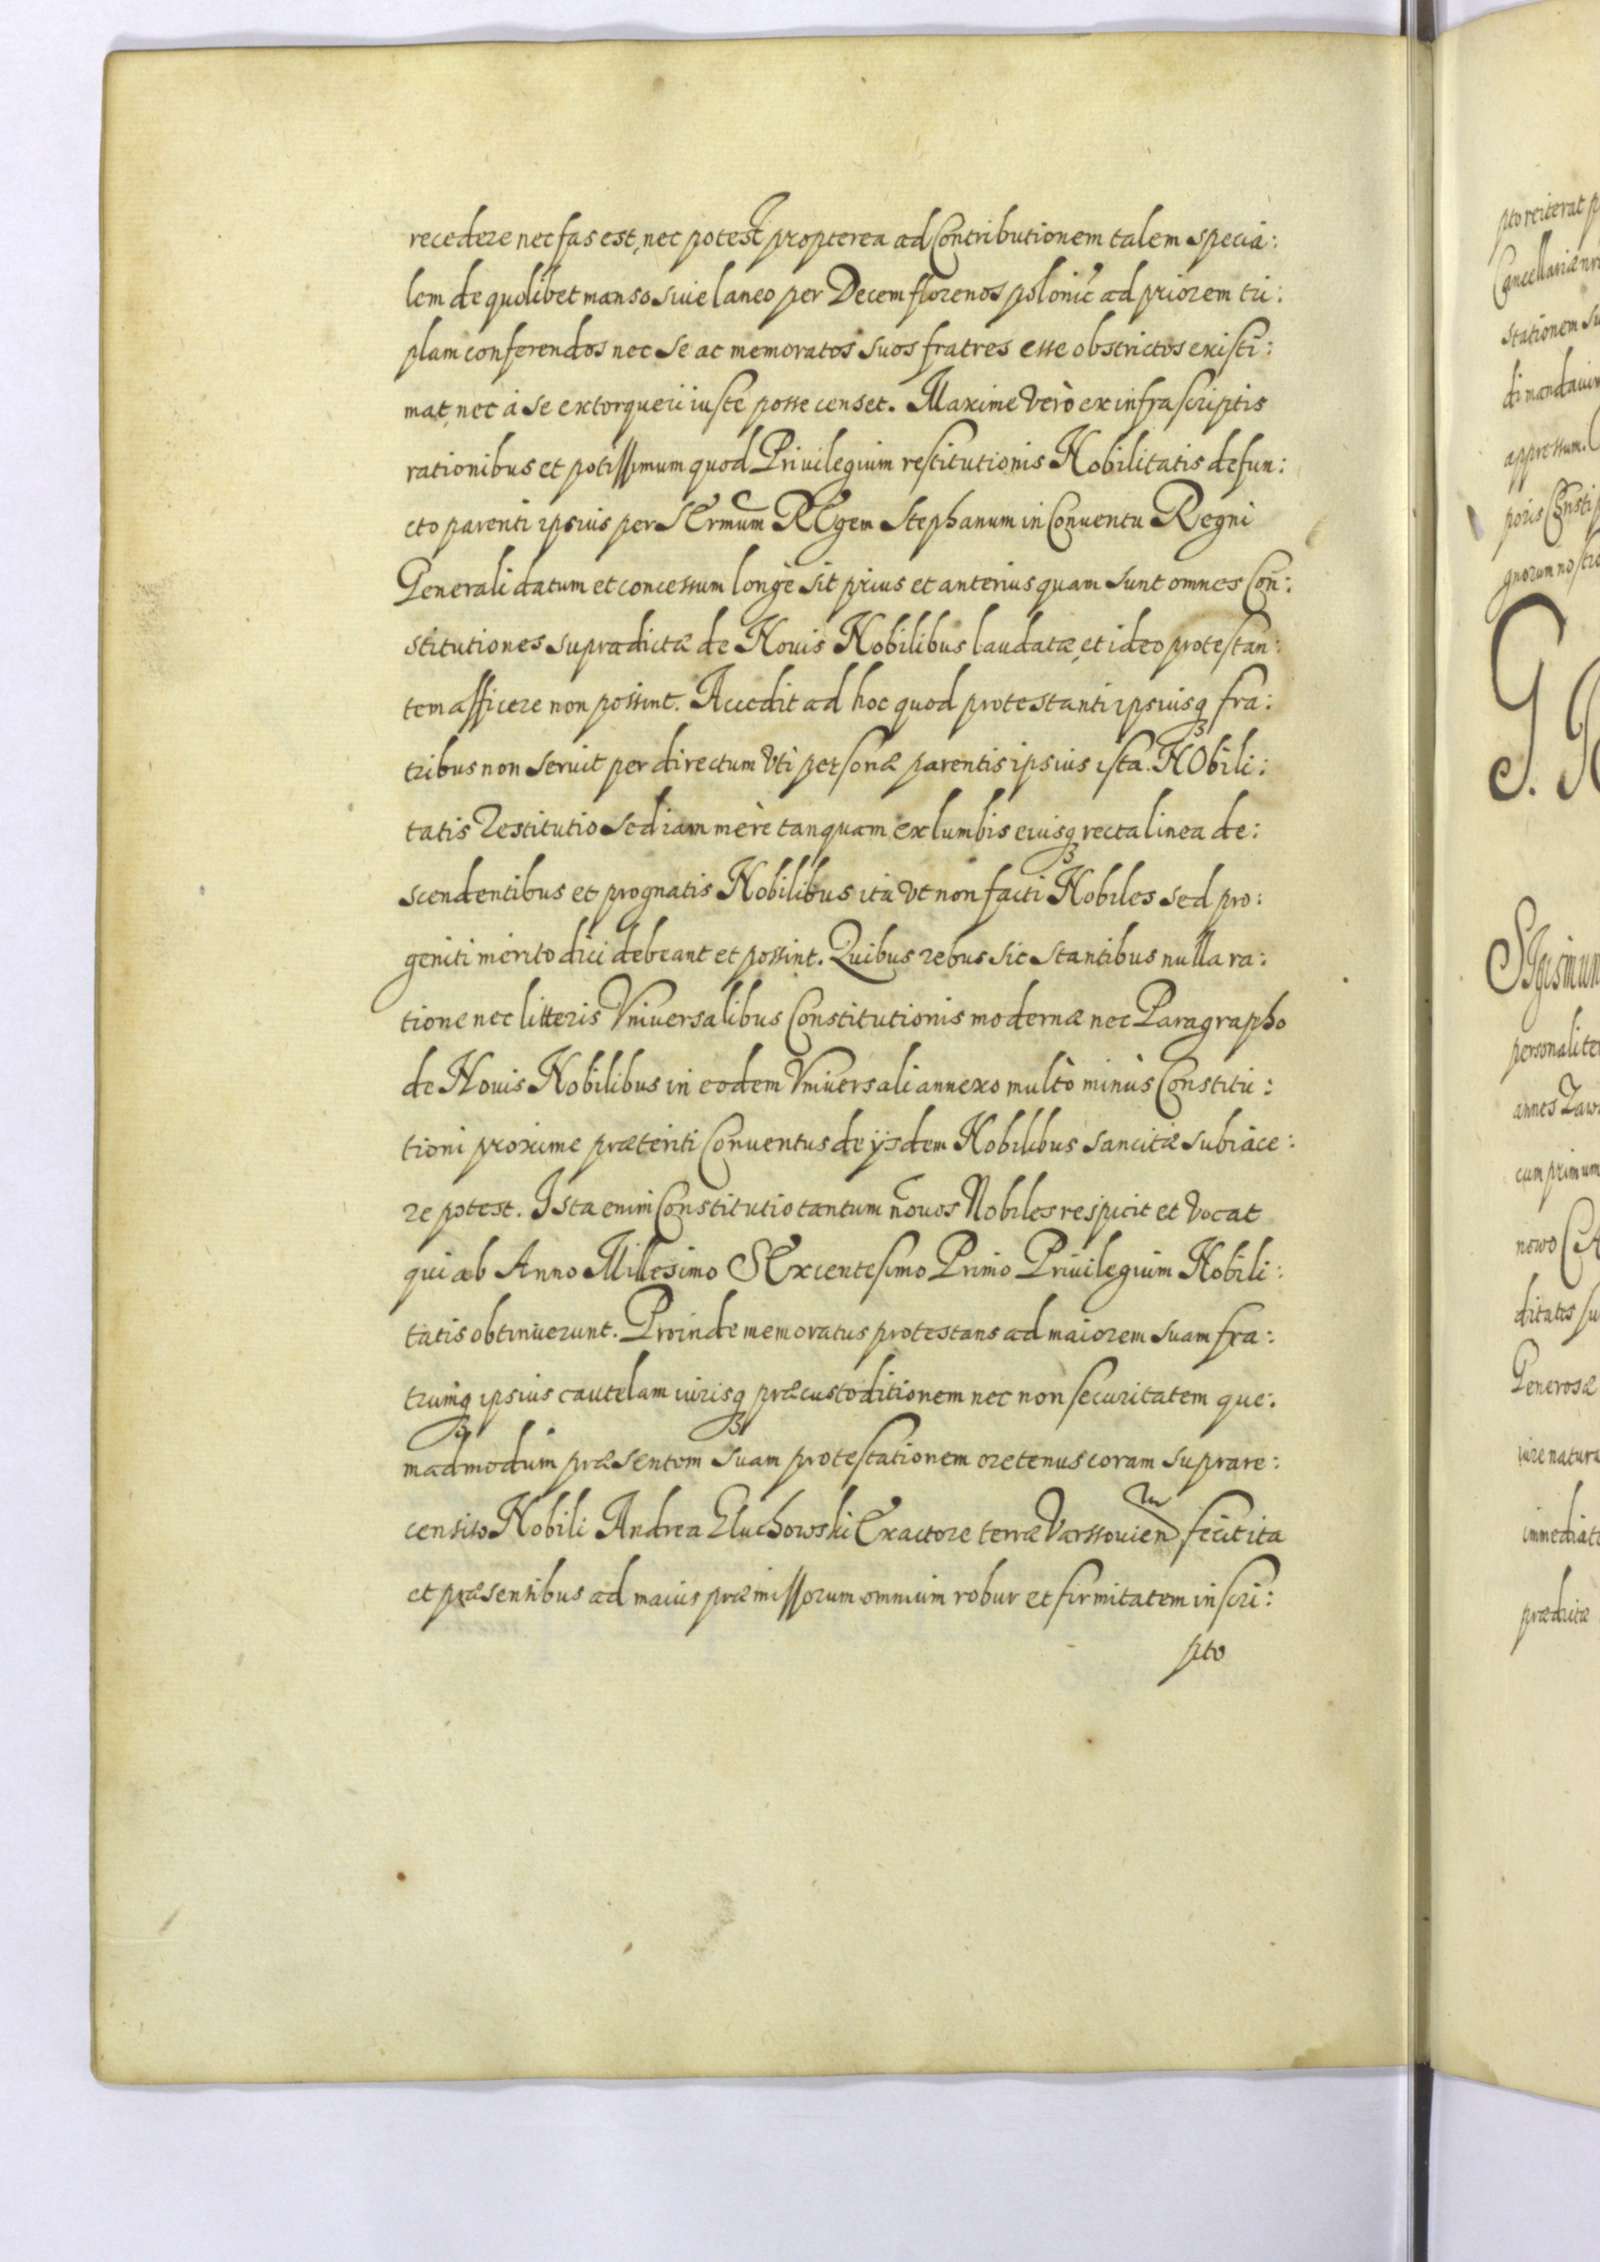 recedere nec fas est, nec potest propterea ad Contributionem talem specia:
lem de quolibet manso siue laneo per Decem florenos polonic ad priorem tri:
plam conferendos nec se ac memoratos suos fratres esse obstrictos existi:
mat, nec à se extorqueri iuste posse censet. Maxime verò ex infrascriptis
rationibus et potissimum quod Priuilegium restitutionis Nobilitatis defun:
cto parenti ipsius per SErmum REgem Stephanum in Conuentu Regni
Generali datum et concessum longè sit prius et anterius quam sunt omnes Con:
stitutiones supradictæ de Nouis Nobilibus laudatæ, et ideo protestan:
tem afficere non possint. Accedit ad hoc quod protestanti ipsiusq fra:
tribus non seruit per directum vti personæ parentis ipsius ista NObili:
tatis Restitutio sed iam mère tanquam ex lumbis eiusq recta linea de:
scendentibus et prognatis Nobilibus ita vt non facti Nobiles sed pro:
geniti merito dici debeant et possint. Quibus rebus sic stantibus nulla ra:
tione nec litteris Vniversalibus Constitutionis modernæ nec Paragrapho
de Nouis Nobilibus in eodem Vniversali annexo multò minùs Constitu:
tioni proxime præteriti Conuentus de ijsdem Nobilibus sancitæ subiace:
re potest. Ista enim Constitutio tantum nouos Nobiles respicit et vocat
qui ab Anno Millesimo SExcentesimo Primo Priuilegium Nobili:
tatis obtinuerunt. Proinde memoratus protestans ad maiorem suam fra:
trumq ipsius cautelam iurisq præcustoditionem nec non securitatem que:
madmodum præsentem suam protestationem oretenus coram suprare:
censito Nobili Andrea Eluchowski Exactore terræ Varssouien fecit ita
et præsentibus ad maius præmissorum omnium robur et firmitatem inscri:
pto
pto reiterat
Cancellariæ
stationem
appressum.
G.
personaliter
annes
cum primum
nowo
ditatis
Generosæ
iure natura
immediate
prædictæ